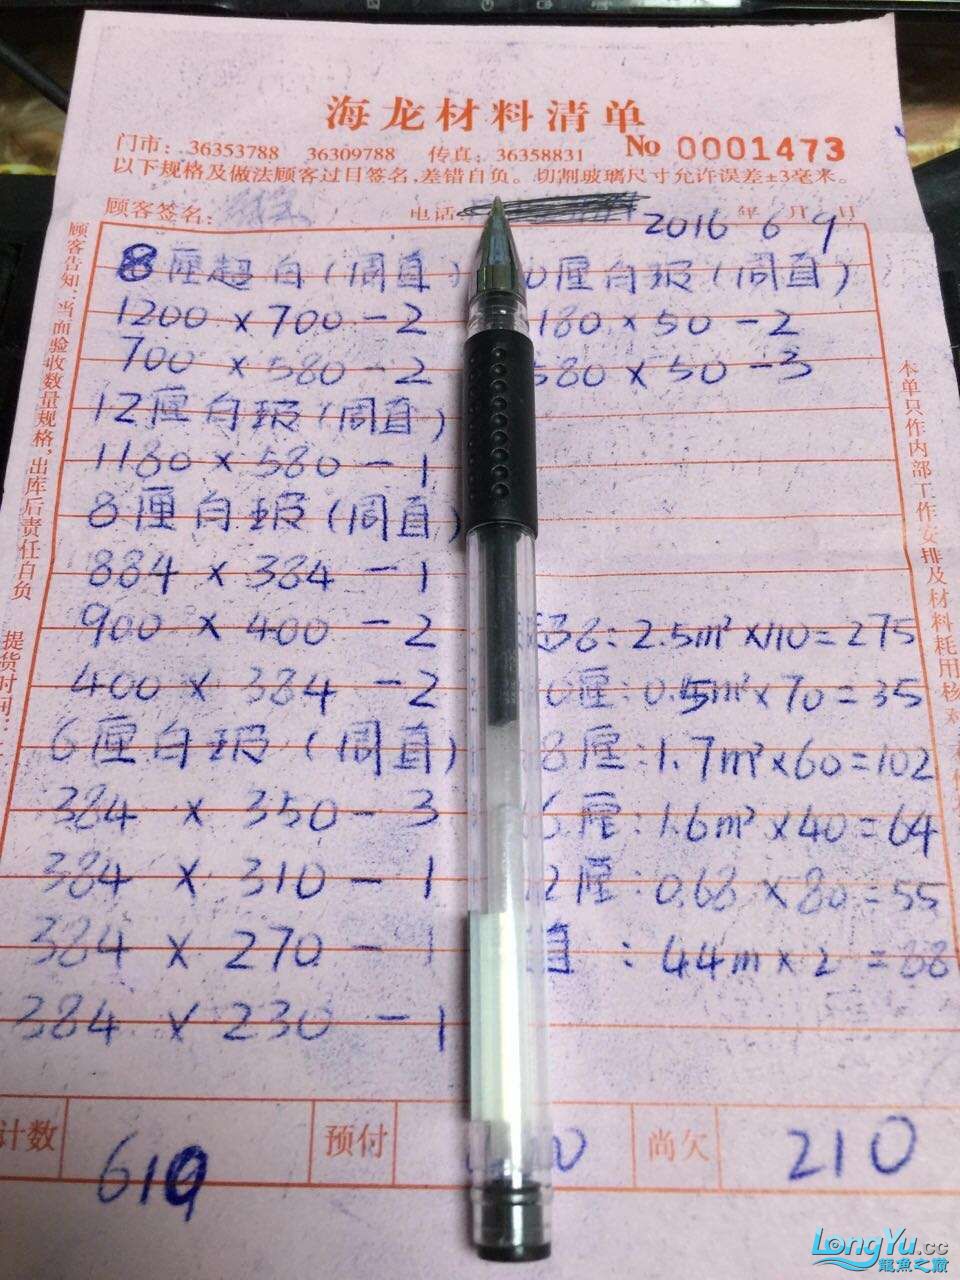 海龙材料清单
门市：36353788 36309788 传真：36358831 No 0001473
以下规格及做法顾客过目签名，差错自负。切割玻璃尺寸允许误差±3毫米。
顾客签名： 电话
2016 年 6 月 9 日
8厘超白(周直) 0厘白玻(周直)
1200×700-2 180×50-2
700×580-2 580×50-3
12厘白玻(周直)
1180×580-1
8厘白玻(周直)
884×384-1
900×400-2 超8:2.5m²×110=275
400×384-2 0厘:0.5m²×70=35
6厘白玻(周直) 8厘:1.7m²×60=102
384×350-3 6厘:1.6m²×40=64
384×310-1 2厘:0.68×80=55
384×270-1 直:44m×2=88
384×230-1
计数 610 预付 00 尚欠 210
顾客告知：当面验收数量规格，出库后责任自负
提货时间：
本单只作内部工作安排及材料耗用核
LongYu.cc
龍魚之巔